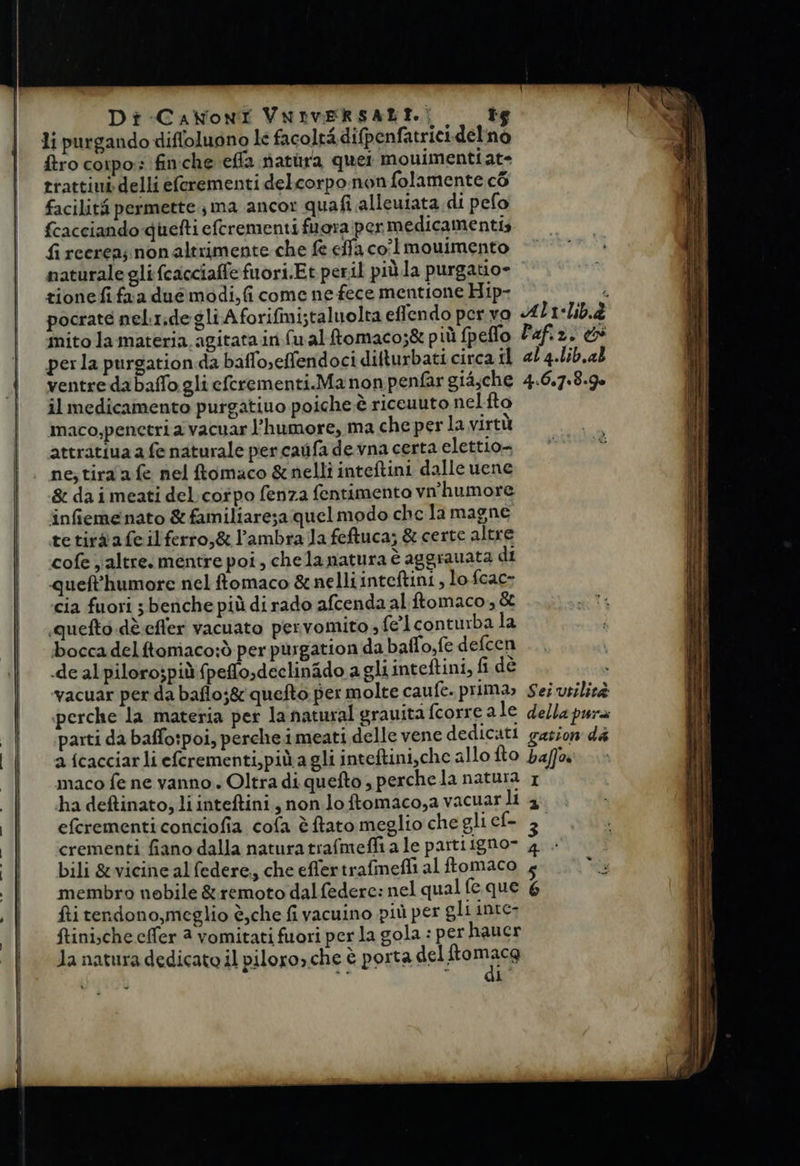 Di CaNoni VniverSali. 19
li purgando diſſoluono le facoltá diſpenſatrici del no
ſtro corpo: finche eſſa natura quei mouimenti at-
trattiui delli eſcrementi del corpo non ſolamente cõ
facilitá permette, ma ancor quaſi alleuiata di peſo
ſcacciando queſti eſcrementi fuora per medicamenti,
ſi recrea, non altrimente che ſe eſſa co'l mouimento
naturale gli ſcacciaſſe fuori. Et per il più la purgatio-
tione ſi fa a due modi, ſi come ne fece mentione Hip-
pocrate nel. 1. de gli Aforiſmi; taluolta eſſendo per vo
mito la materia agitata in ſu al ſtomaco; & più ſpeſſo
per la purgation da baſſo, eſſendoci diſturbati circa il
ventre da baſſo gli eſcrementi. Ma non penſar giá, che
il medicamento purgatiuo poiche è riceuuto nel ſto
maco, penetri a vacuar l'humore, ma che per la virtù
attratiua a ſe naturale per cauſa de vna certa elettio-
ne, tira a ſe nel ſtomaco & nelli inteſtini dalle uene
& da i meati del corpo ſenza ſentimento vn'humore
inſieme nato & familiare; a quel modo che la magne
te tira a ſe il ferro, & l'ambra la feſtuca; & certe altre
coſe, altre. mentre poi, che la natura è aggrauata di
queſt'humore nel ſtomaco & nelli inteſtini, lo ſcac-
cia fuori; benche più di rado aſcenda al ſtomaco, &
queſto dè eſſer vacuato per vomito, ſe'l conturba la
bocca del ſtomaco: ò per purgation da baſſo, ſe deſcen
de al piloro; più ſpeſſo, declinãdo a gli inteſtini, ſi dè
vacuar per da baſſo; & queſto per molte cauſe. prima,
perche la materia per la natural grauita ſcorre a le
parti da baſſo: poi, perche i meati delle vene dedicati
a ſcacciar li eſcrementi, più a gli inteſtini, che allo ſto
maco ſe ne vanno. Oltra di queſto, perche la natura
ha deſtinato, li inteſtini, non lo ſtomaco, a vacuar li
eſcrementi concioſia coſa è ſtato meglio che gli eſ-
crementi ſiano dalla natura traſmeſſi a le parti igno-
bili & vicine al federe, che eſſer traſmeſſi al ſtomaco
membro nobile & remoto dal federe: nel qual ſe que
ſti tendono, meglio è, che ſi vacuino più per gli inte-
ſtini, che eſſer a vomitati fuori per la gola: per hauer
la natura dedicato il piloro, che è porta del ſtomaco
di
Al 1. lib. &
l'af. 2. &
al 4. lib. al
4. 6. 7. 8. 9.
Sei vtilità
della pura
gation da
baſſo.
1
2
3
4
5
6